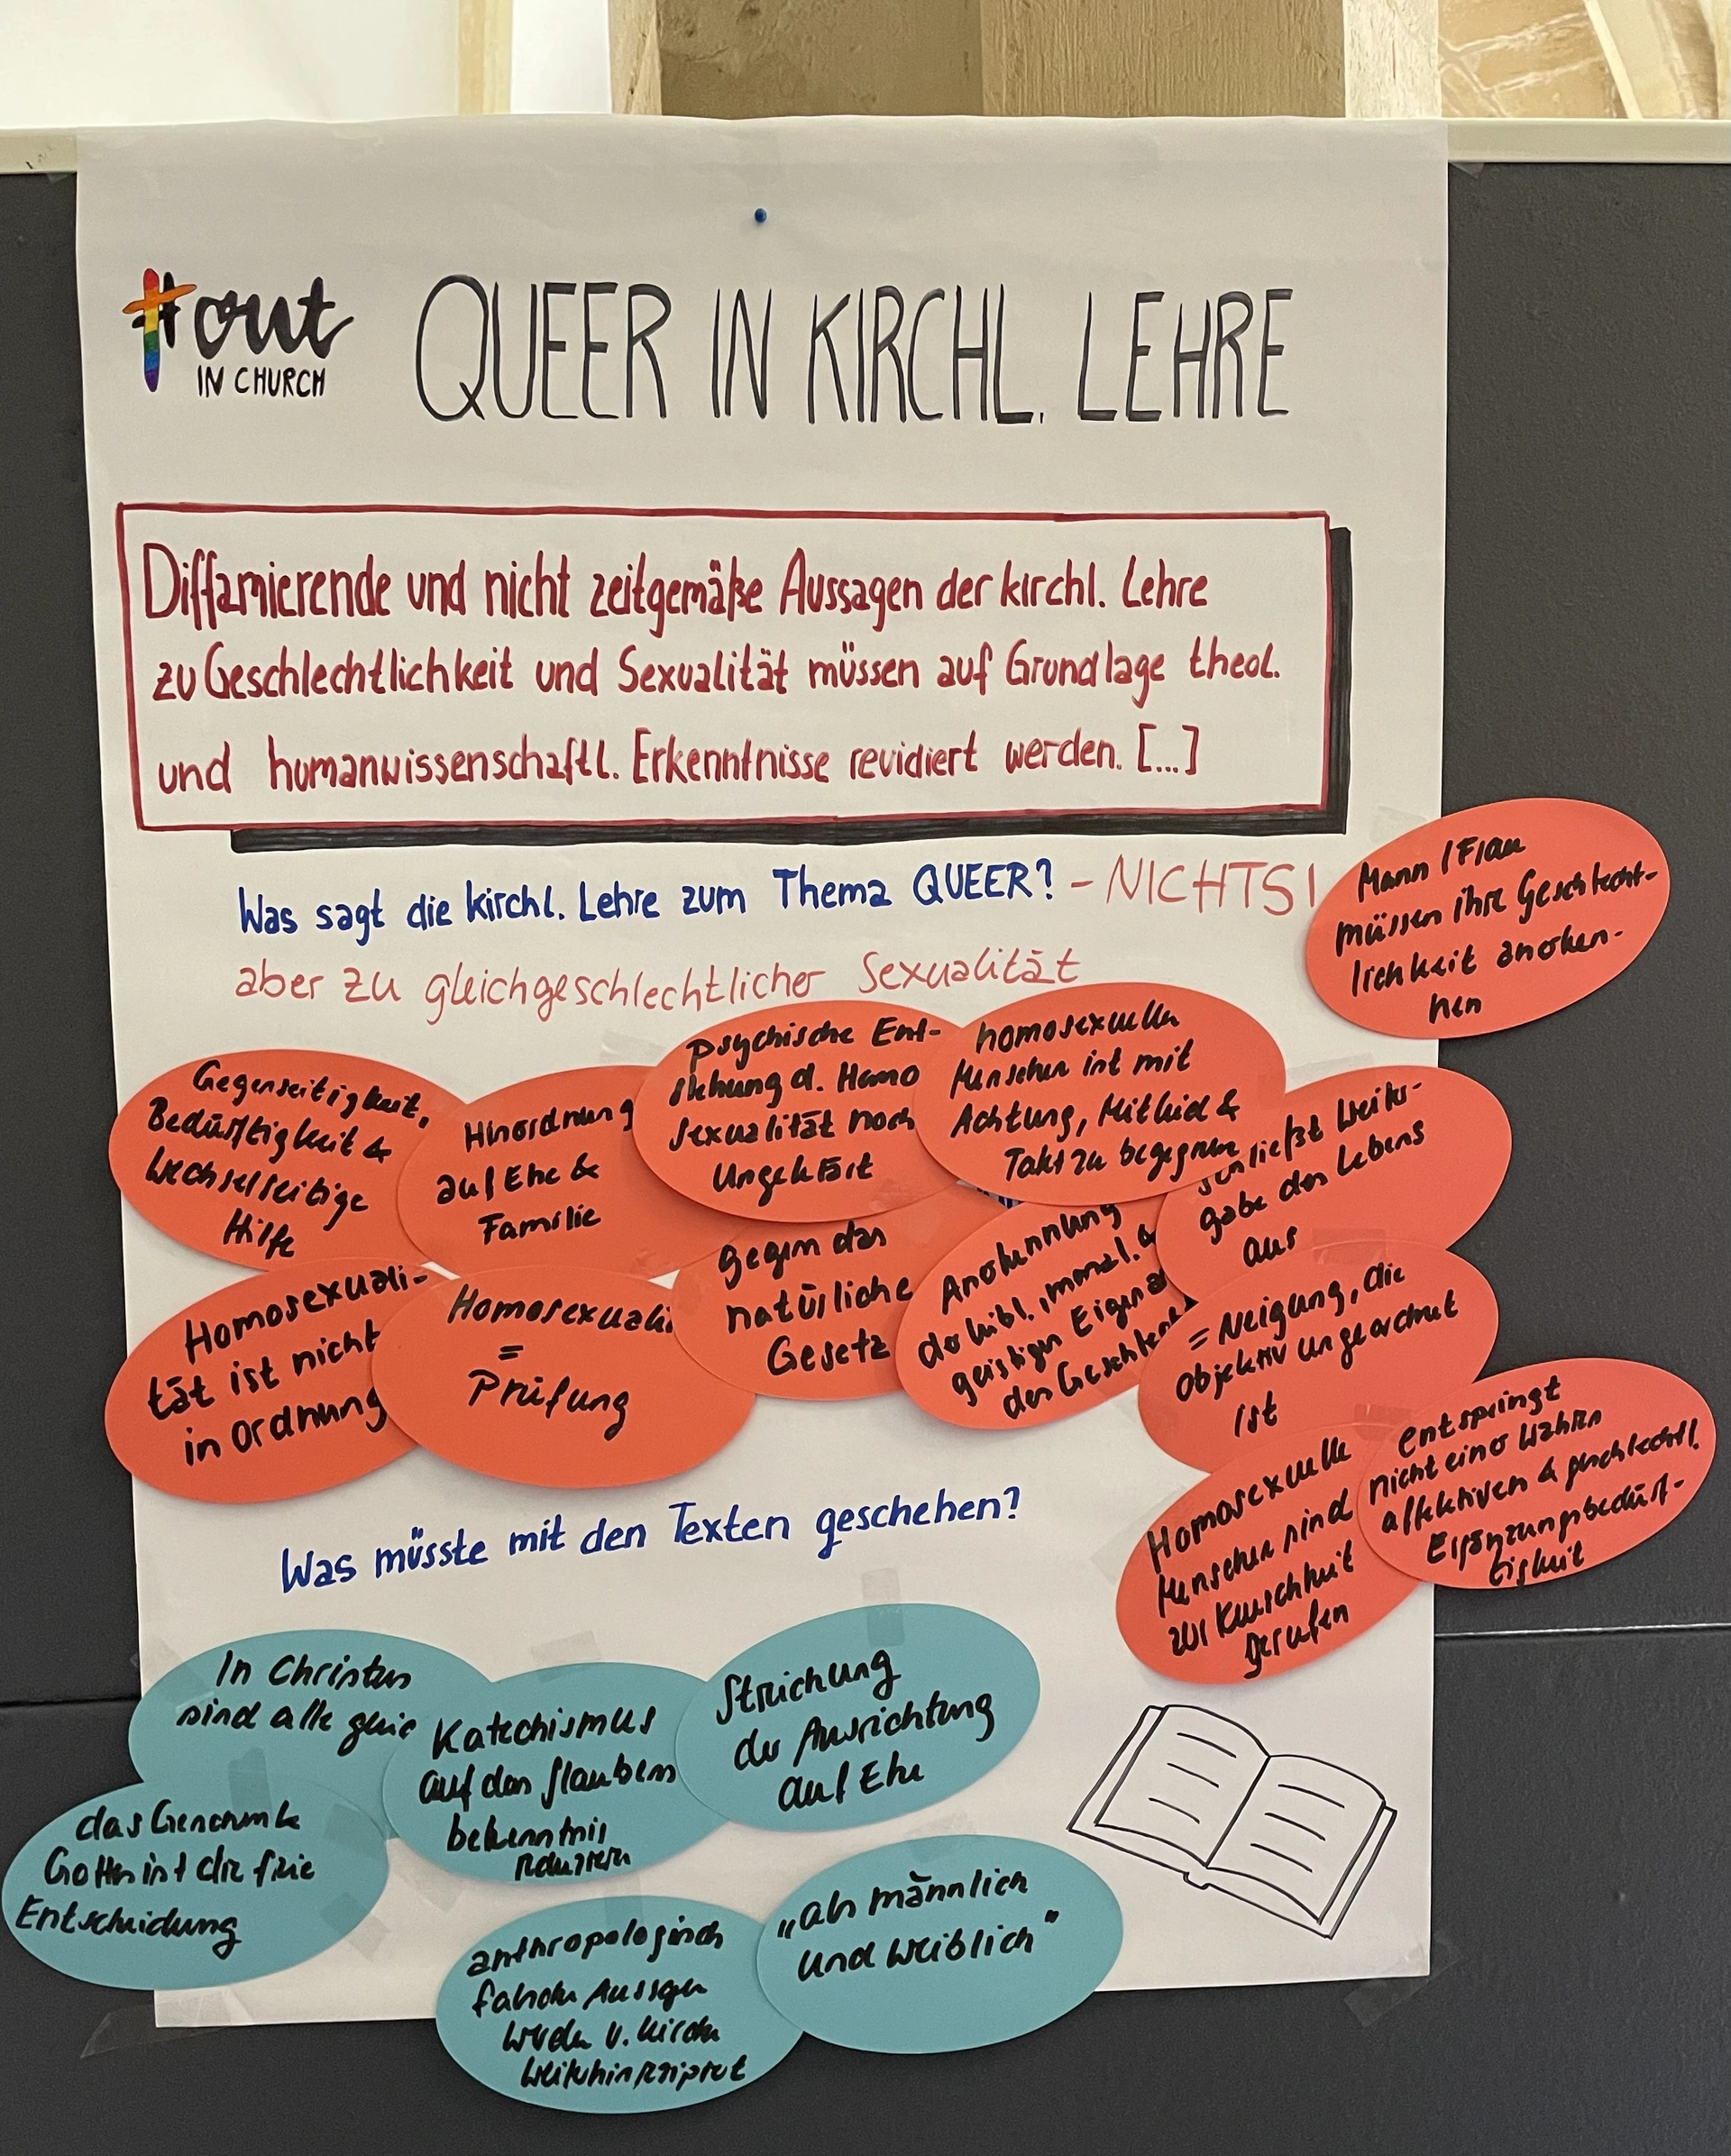 #out
IN CHURCH
QUEER IN KIRCHL. LEHRE
Diffamierende und nicht zeitgemäße Aussagen der kirchl. Lehre
zu Geschlechtlichkeit und Sexualität müssen auf Grundlage theol.
und humanwissenschaftl. Erkenntnisse revidiert werden. [...]
Was sagt die kirchl. Lehre zum Thema QUEER? - NICHTS!
aber zu gleichgeschlechtlicher Sexualität
Mann / Frau
müssen ihre Geschlecht-
lichkeit anerken-
nen
Gegenseitigkeit,
Bedürftigkeit &
wechselseitige
Hilfe
Hinordnung
auf Ehe &
Familie
Psychische Ent-
stehung d. Homo
sexualität noch
ungeklärt
homosexuellen
Menschen ist mit
Achtung, Mitleid &
Takt zu begegnen
schließt Weiter-
gabe des Lebens
aus
Homosexuali-
tät ist nicht
in Ordnung
Homosexuali
=
Prüfung
gegen das
natürliche
Gesetz
Anerkennung
der leibl., moral. &
geistigen
der Geschlechter
= Neigung, die
objektiv ungeordnet
ist
Homosexuelle
Menschen sind
zur Keuschheit
gerufen
entspringt
nicht einer wahren
affektiven & geschlechtl.
Ergänzungsbedürf-
tigkeit
Was müsste mit den Texten geschehen?
In Christus
sind alle gleic
Katechismus
auf das Glaubens
bekenntnis
reduzieren
Streichung
der Ausrichtung
auf Ehe
das Geschenk
Gottes ist die freie
Entscheidung
anthropologisch
falsche Aussagen
werden v. Kirche
weiterhin rezipiert
„als männlich
und weiblich"